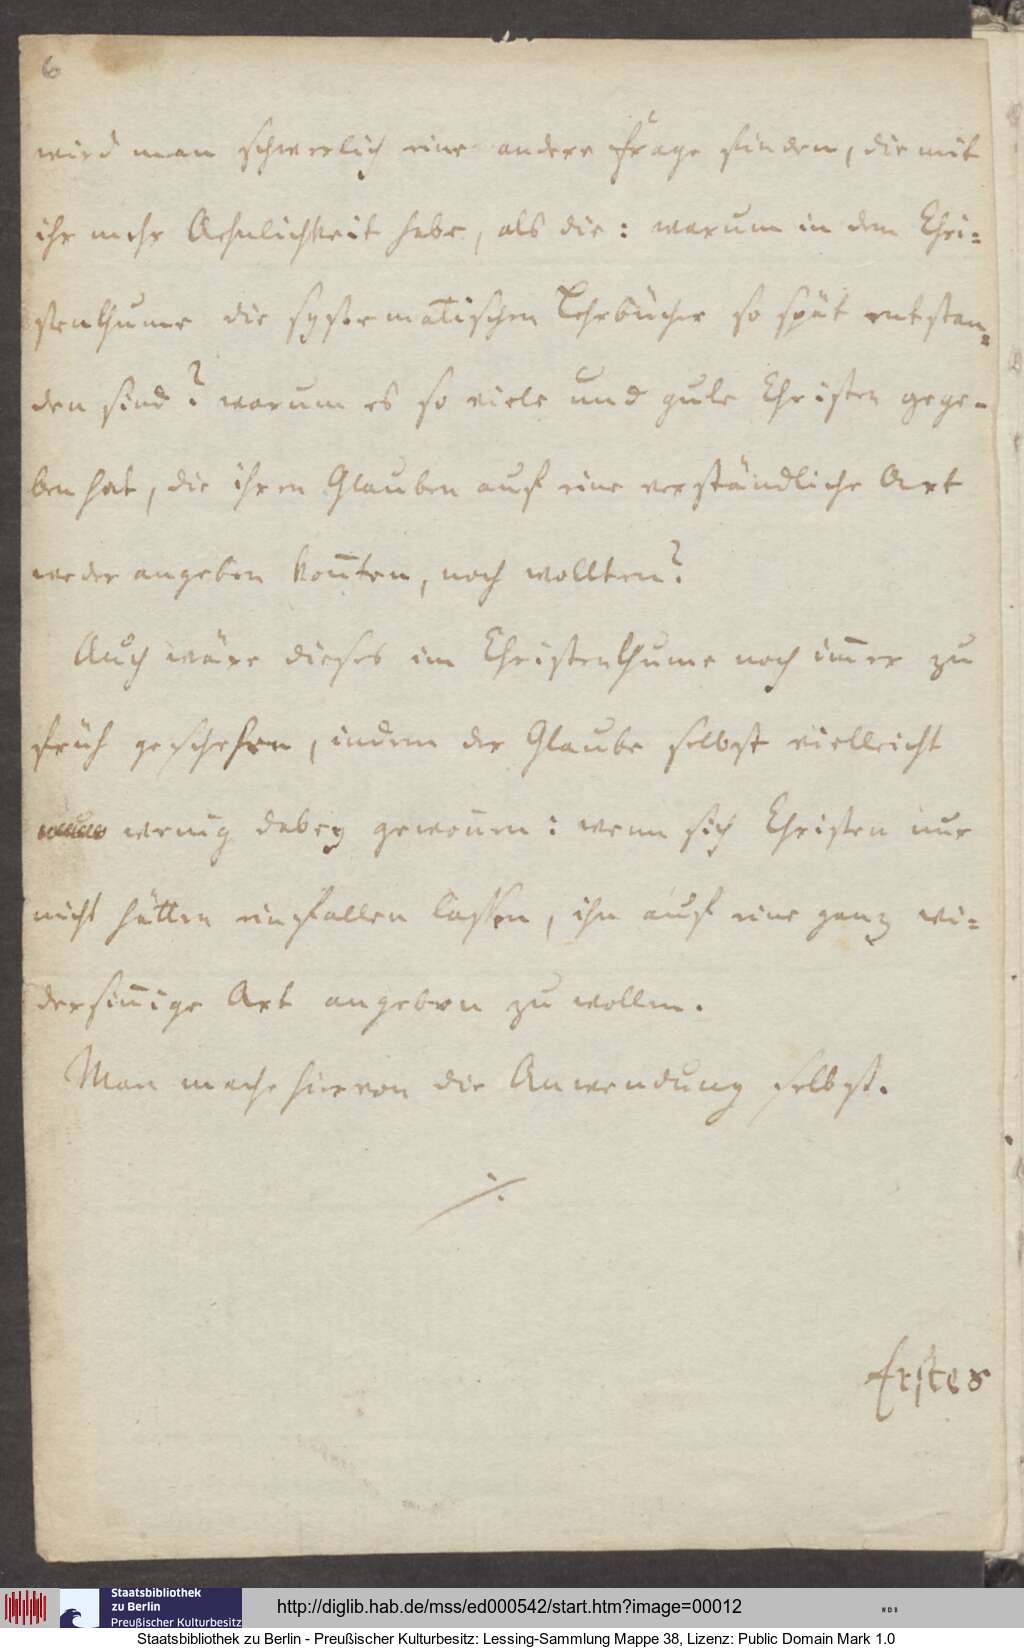 6
wird man schwerlich eine andere Frage finden, die mit
ihr mehr Aehnlichkeit habe, als die: warum in dem Chri=
stenthume die systematischen Lehrbücher so spät entstan=
den sind? warum es so viele und gute Christen gege=
ben hat, die ihren Glauben auf eine verständliche Art
weder angeben kon̄ten, noch wollten?
Auch wäre dieses im Christenthume noch im̄er zu
früh geschehen, indem der Glaube selbst vielleicht
wenig dabey gewonnen: wenn sich Christen nur
nicht hätten einfallen lassen, ihn auf eine ganz wi=
dersin̄ige Art angeben zu wollen.
Man mache hiervon die Anwendung selbst.
Erstes
Staatsbibliothek
zu Berlin
Preußischer Kulturbesitz
http://diglib.hab.de/mss/ed000542/start.htm?image=00012
WDB
Staatsbibliothek zu Berlin - Preußischer Kulturbesitz: Lessing-Sammlung Mappe 38, Lizenz: Public Domain Mark 1.0